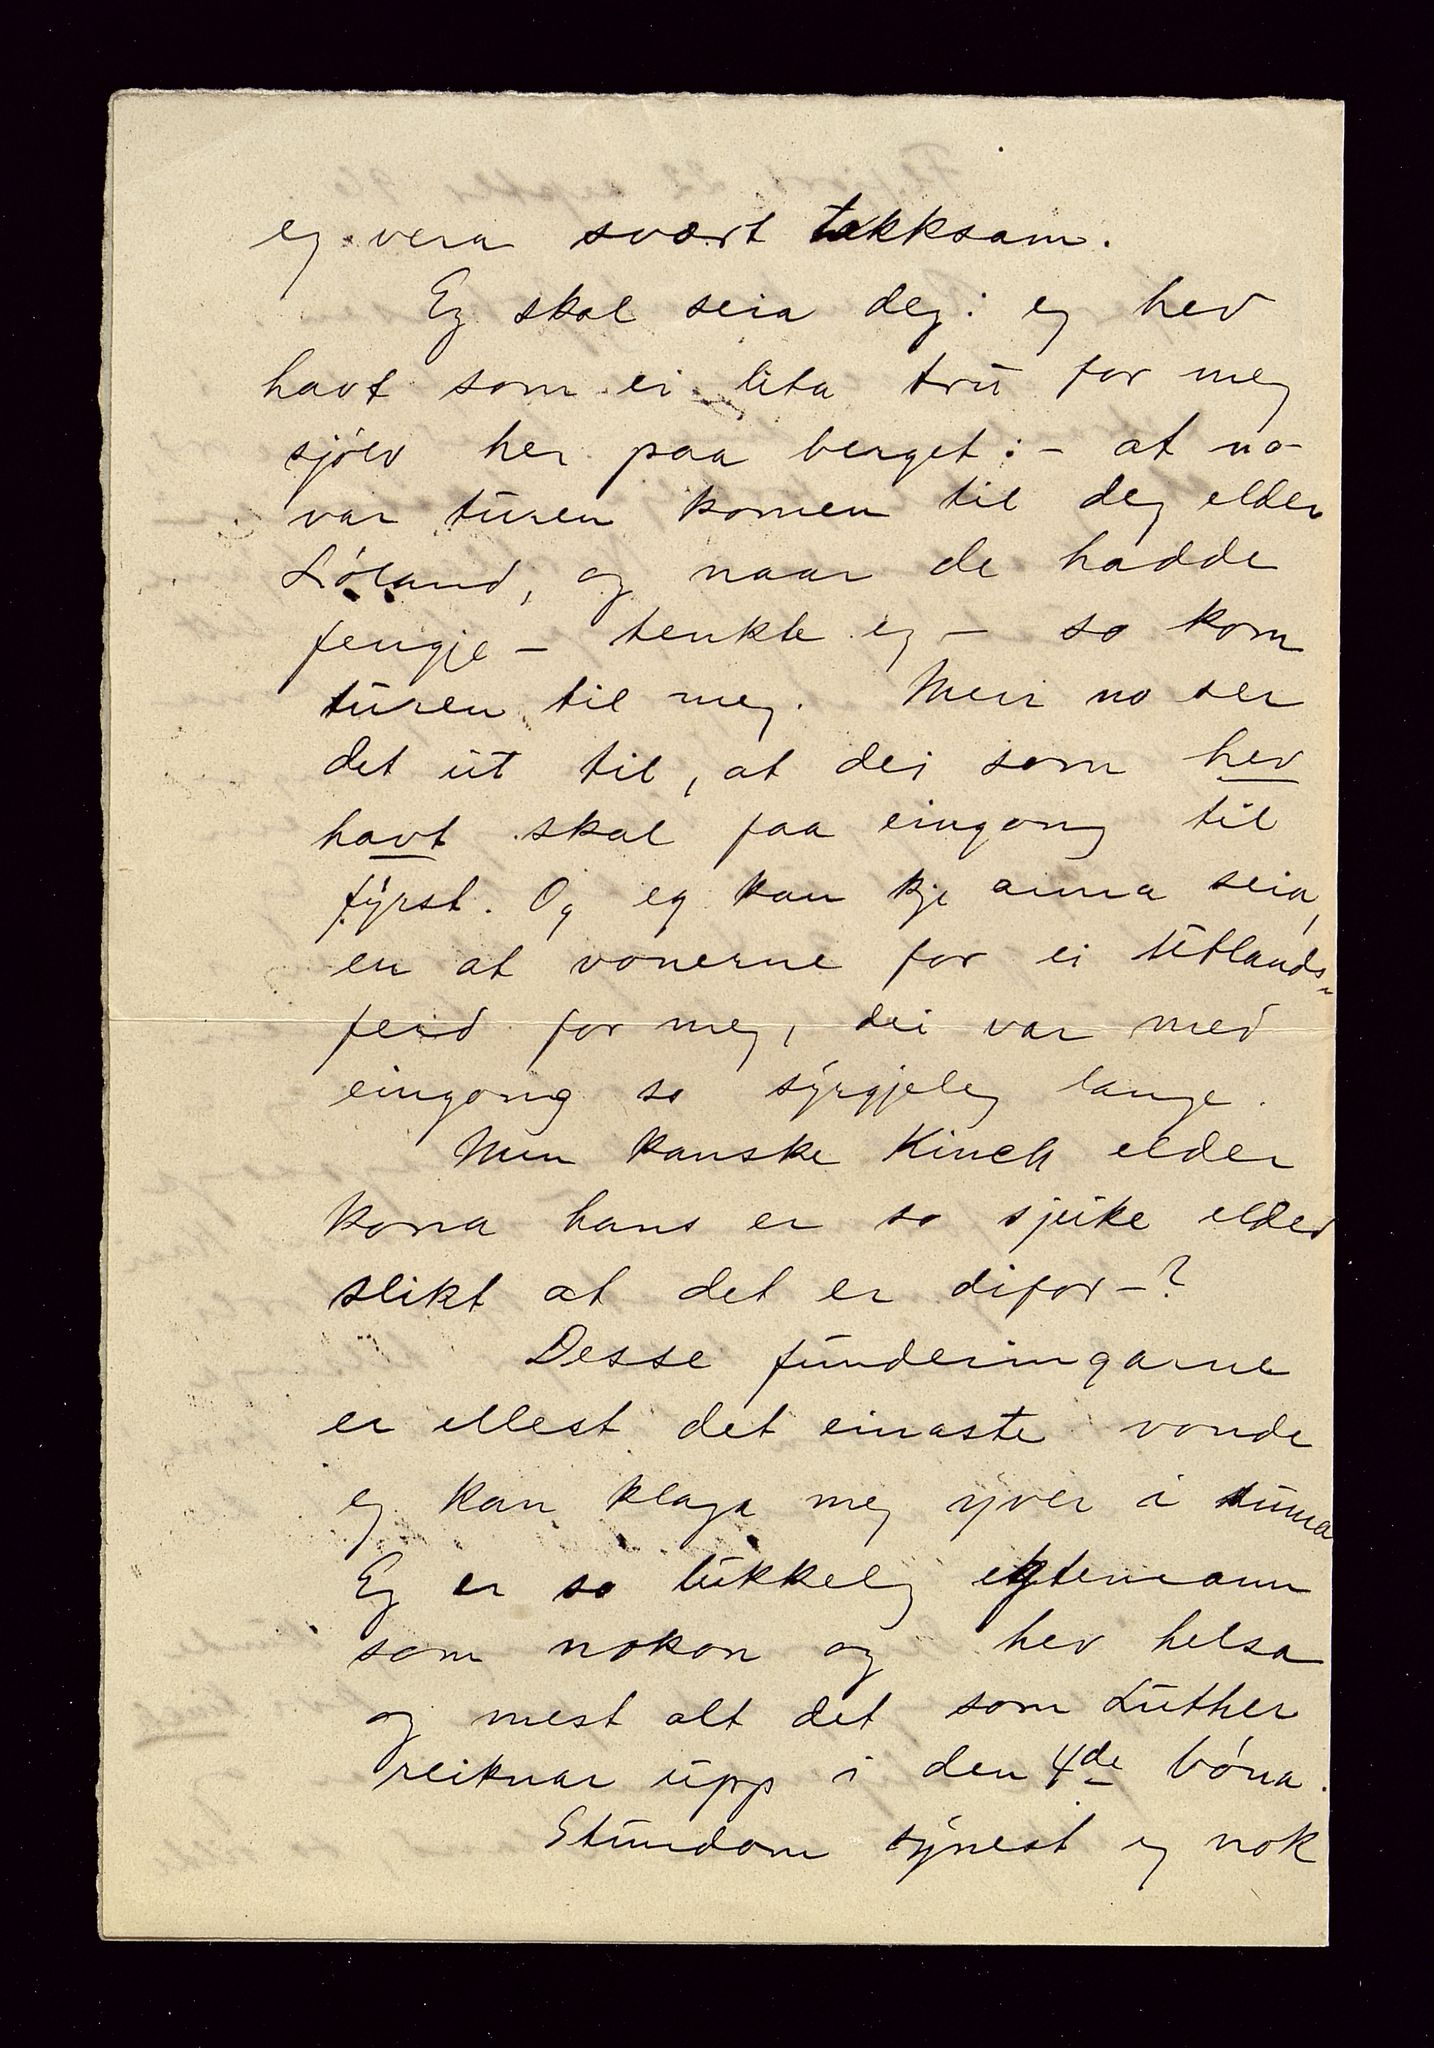 eg vera svært takksam.
Eg skal seia deg: eg hev
havt som ei lita tru for meg
sjölv her paa berget: - at no
var turen komen til deg elder
Löland, og naar de hadde
fengje - tenkte eg - so kom
turen til meg. Men no ser
det ut til, at dei som hev
havt skal faa eingong til
fyrst. Og eg kan kje anna seia,
en at vonerne for ei utlands-
ferd for meg, dei var med
eingong so syrgjeleg lange.
Men kanske Kinck elder
kona hans er so sjuke elder
slikt at det er difor-?
Desse funderingarne
er ellest det einaste vonde
eg kan klaga meg yver i
Eg er so lukkeleg egtemann
som nokon og hev helsa
og mest alt det som Luther
reiknar upp i den 4de böna.
Stundom synest eg nok